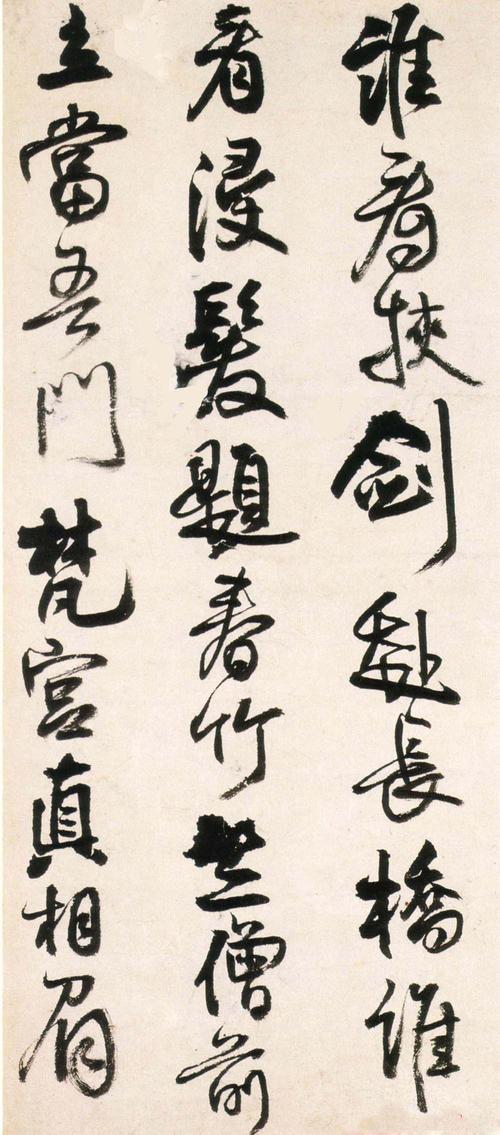 誰看挾劍赴長橋誰
看浸髮題春竹世僧前
立當吾門梵宮真相眉